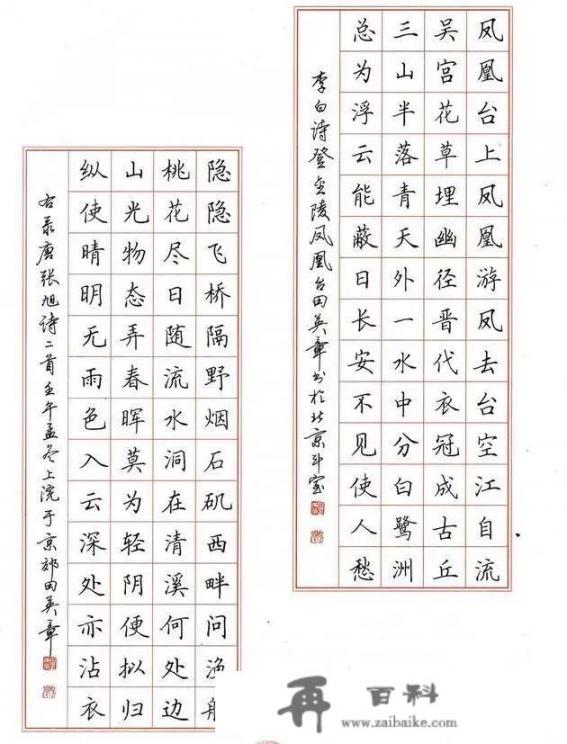 凤凰台上凤凰游凤去台空江自流
吴宫花草埋幽径晋代衣冠成古丘
三山半落青天外一水中分白鹭洲
总为浮云能蔽日长安不见使人愁
李白诗登金陵凤凰台田英章书於北京斗室
隐隐飞桥隔野烟石矶西畔问
桃花尽日随流水洞在清溪何处边
山光物态弄春晖莫为轻阴便拟归
纵使晴明无雨色入云深处亦沾衣
右录唐张旭诗二首壬午孟冬上浣于京郊田英章
再百科
www.zaibaike.com